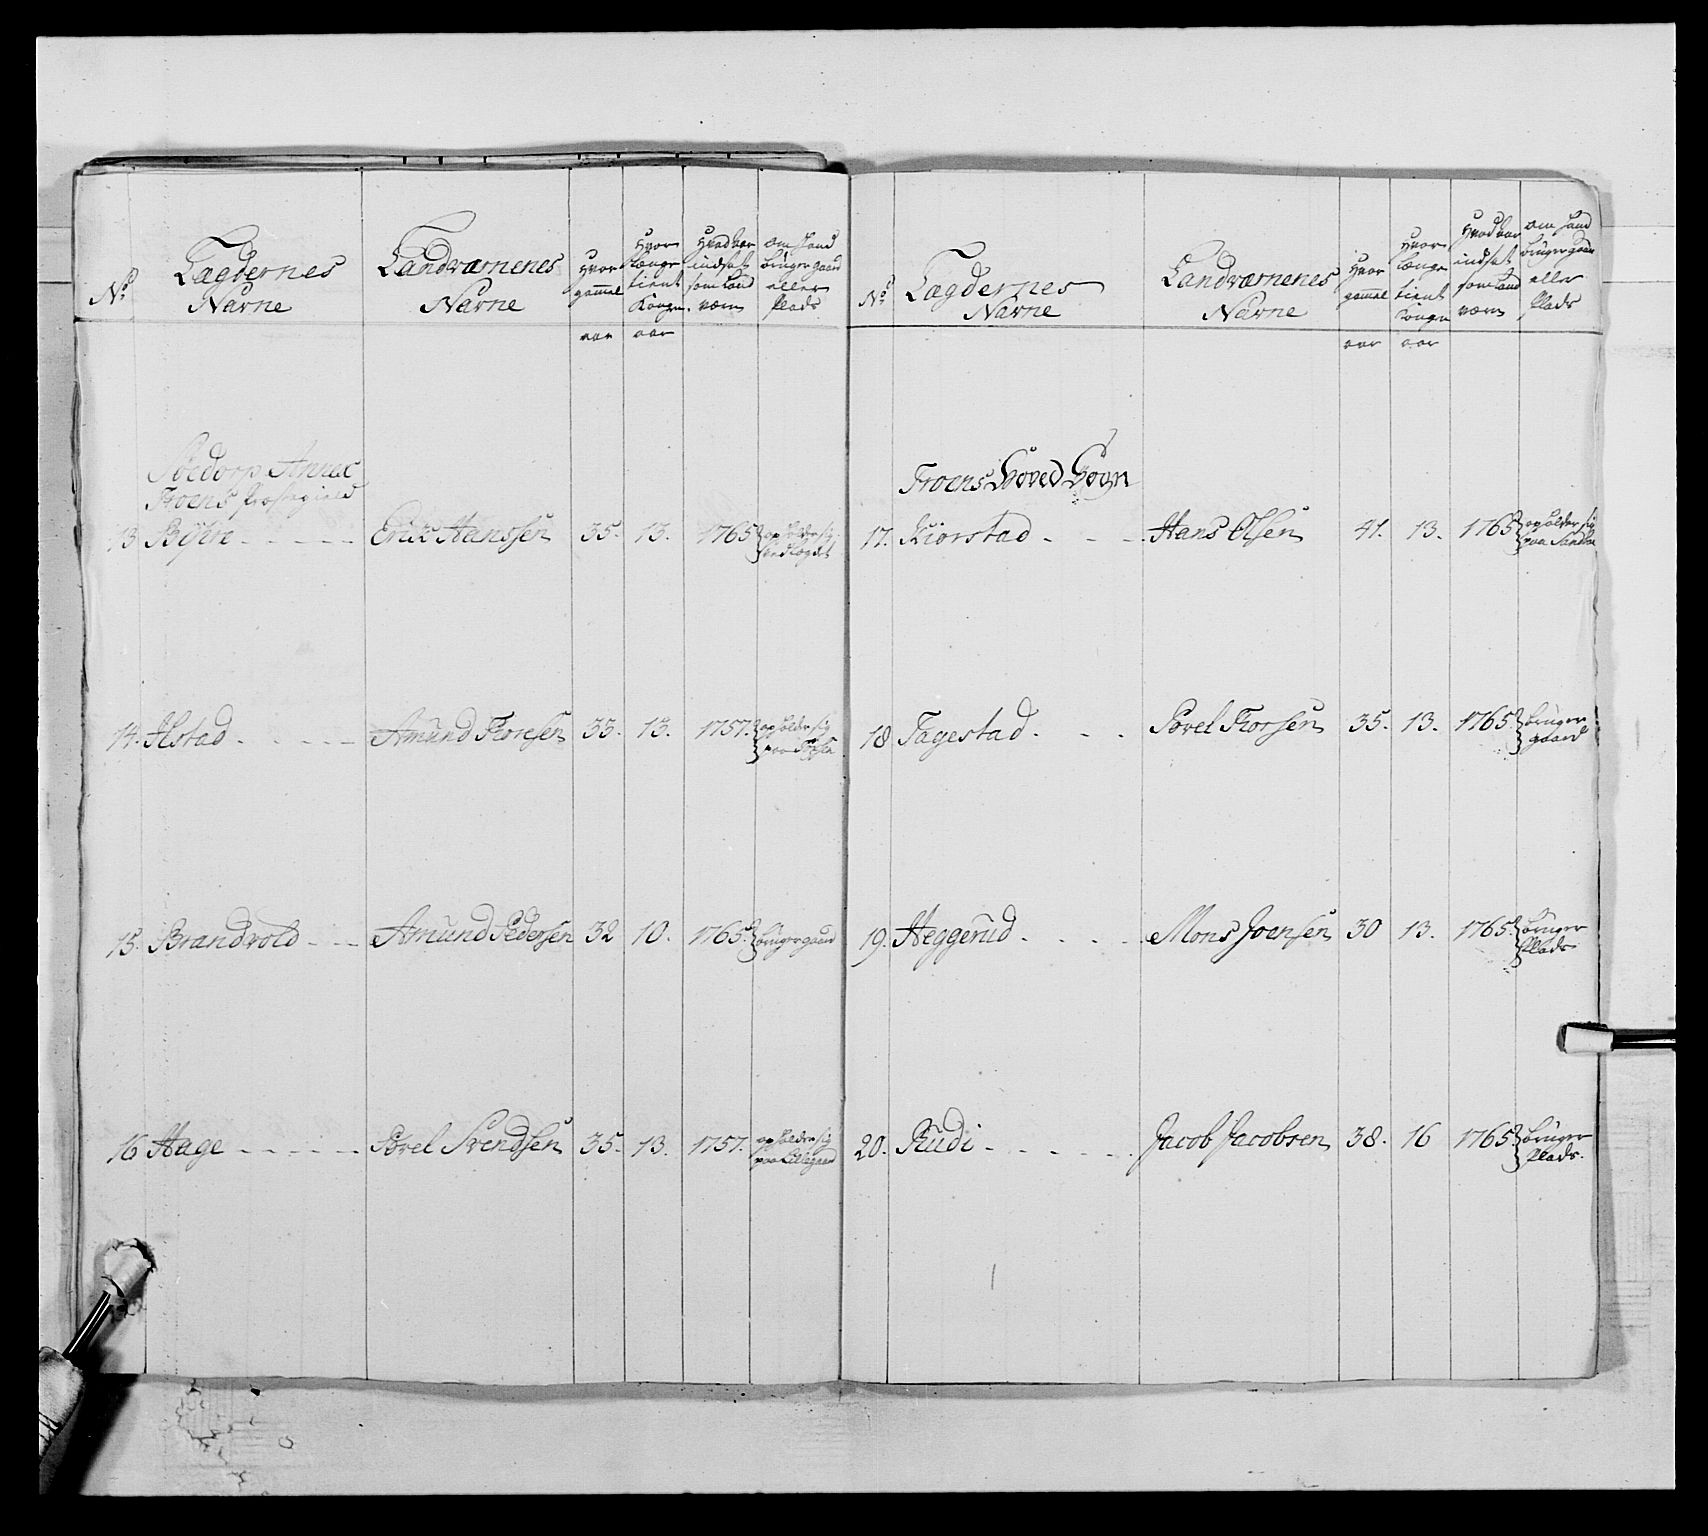 No.
Lægdernes
Nàvne
Landværnenes
Nàvne
Hvor
gammel
aar
Hvor
længe
tient
Kongen.
aar
Hvad aar
indsat
som Land
værn
om Hand
bruger gaard
eller
Plads
Söedorp Annex
Froens Præstegield
13 Erik Hanssen 35. 13. 1765 opholder sig
i lægdet
14. Alstad Amund Toresen 33. 13. 1757. opholder sig
paa
15. Brandvold Amund Pedersen 32 10. 1765. bruger gaard
16 Hage Povel Svendsen 35. 13. 1757. opholder sig
paa Lillegaard
No.
Lægdernes
Nàvne
Landværnenes
Nàvne
Hvor
gammel
aar
Hvor
længe
tient
Kongen
aar
Hvad aar
indsat
som Land
værn
om Hand
bruger gaard
eller
Plads
Froens Hoved Sogn
17. Kiorstad Hans Olsen 41. 13. 1765 opholder sig
paa
18 Fagestad Povel Torsen 35. 13. 1765. bruger
gaard
19. Heggerud Mons Joensen 30 13. 1765. bruger
Plads
20. Rudi Jacob Jacobsen 38. 16 1765. bruger
Plads.